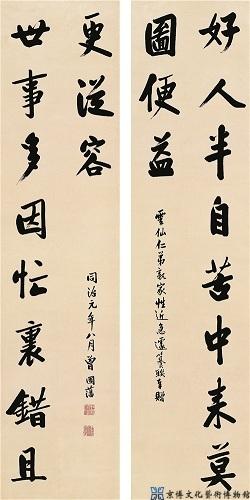 好人半自苦中來莫
圖便益
雲仙仁弟親家性近急遽纂聯奉贈
世事多因忙裏錯且
更從容
同治元年八月曾國藩
文化藝術博物館